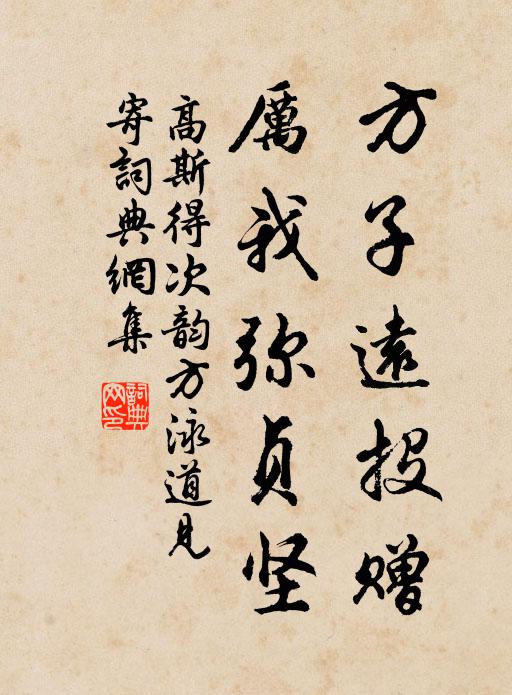 方子遠投赠
厲我弥贞坚
高斯得次韵方泳道見
寄詞典網集
詞典网印